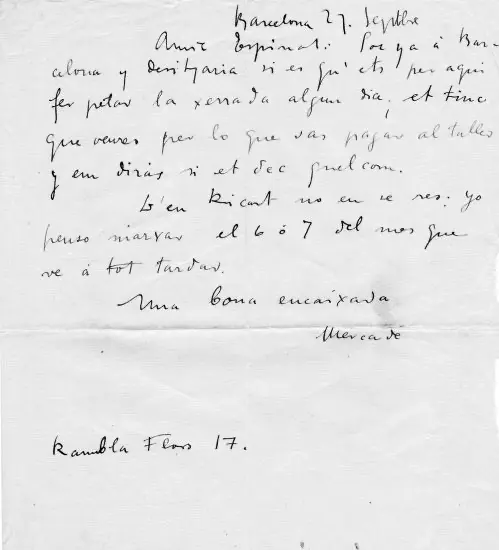 Barcelona 27. Septbre
Amic Espinal: Soc ya á Bar-
celona y desitjaria si es qu' ets per aqui
fer petar la xerrada algun dia; et tinc
que veurer per lo que vas pagar al taller
y em dirás si et dec quelcom.
D'en Ricart no en se res: yo
penso marxar el 6 ó 7 del mes que
ve á tot tardar.
Una bona encaixada
Mercadé
Rambla Flors 17.